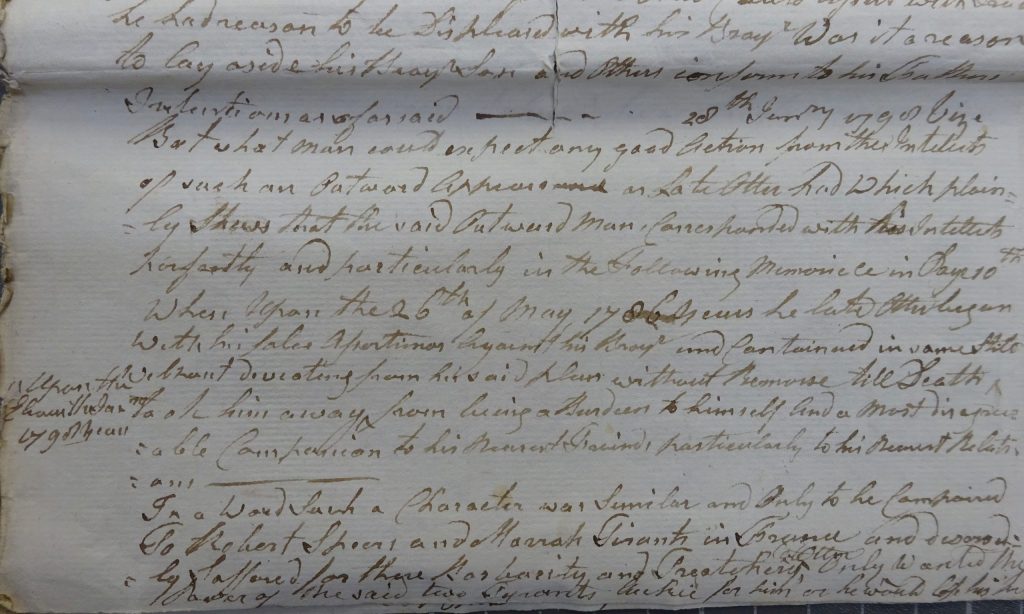 he had reason to be Displeasd with his Broyr Was it a reason
to lay aside his Broyr Son and Others conform to his Fathers
Intentions as aforsaid
28th Janry 1798 Vize
But what man could expect any good Action from the Intelects
of such an Outward Appearance as Late Otter had Which plain=
=ly Shews that the said Outward Man Corresponded with his Intelects
perfectly and particularly in the Following in Page 10th
When Upon the 26th of May 1786 Years he late Otter began
With his false Assertions Against his Broyr and Contained in same State
Without deviating from his said plan without Remorse till Death
Upon the
Eleventh Jan
1798 Years
Took him away from being a Burden to himself And a Most disagree
=able Companion to his Nearest Friends particularly to his Nearest Relati
=ons
In a Word Such a Character was Similar and Only to be Compaired
To Robert Speers and Marrah Tirants in France and deserved
=ly Suffered for there Barbarity and Treatchery Otter Only Wanted the
Power of the said two Tyrants for him or he would